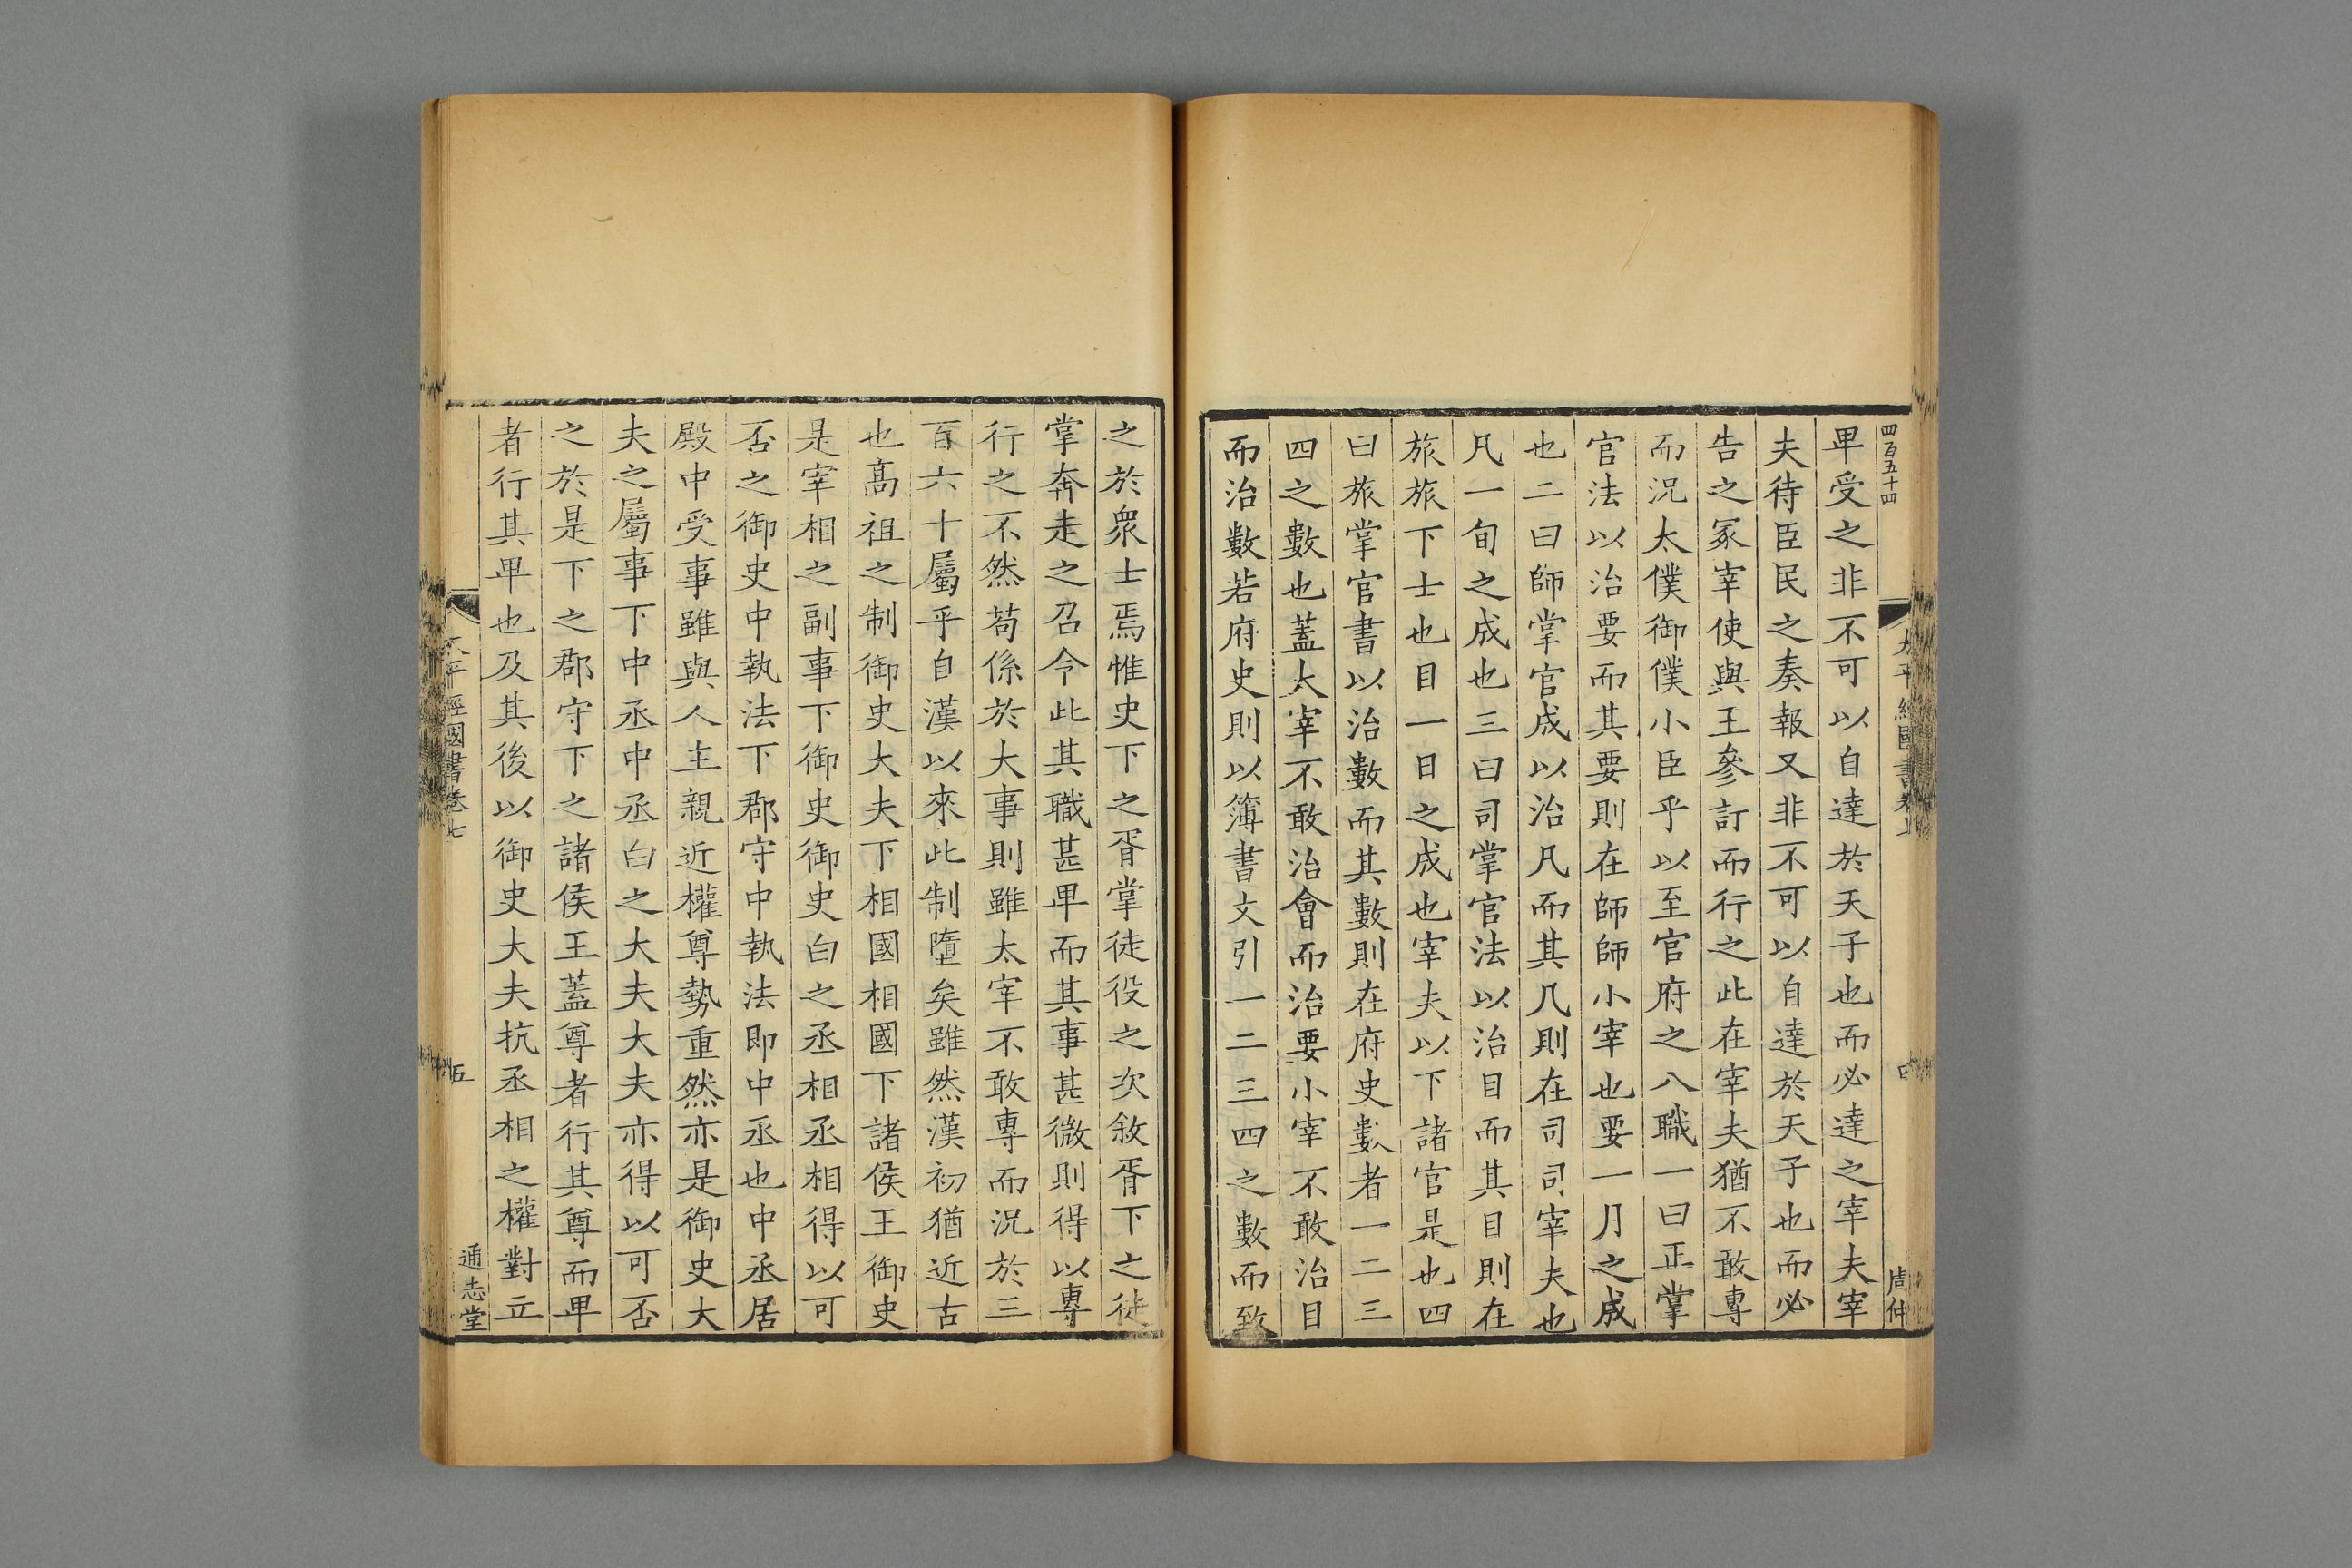 四百五十四
太平經國書卷七
四
周仲
卑受之非不可以自達於天子也而必達之宰夫宰
夫待臣民之奏報又非不可以自達於天子也而必
告之冢宰使與王參訂而行之此在宰夫猶不敢專
而況太僕御僕小臣乎以至官府之八職一曰正掌
官法以治要而其要則在師師小宰也要一月之成
也二曰師掌官成以治凡而其凡則在司司宰夫也
凡一旬之成也三曰司掌官法以治目而其目則在
旅旅下士也目一日之成也宰夫以下諸官是也四
曰旅掌官書以治數而其數則在府史數者一二三
四之數也蓋大宰不敢治會而治要小宰不敢治目
而治數若府史則以簿書文引一二三四之數而致
之於眾士焉惟史下之胥掌徒役之次敘胥下之徒
掌奔走之召令此其職甚卑而其事甚微則得以專
行之不然苟係於大事則雖太宰不敢專而況於三
百六十屬乎自漢以來此制墮矣雖然漢初猶近古
也高祖之制御史大夫下相國相國下諸侯王御史
是宰相之副事下御史御史白之丞相丞相得以可
否之御史中執法下郡守中執法即中丞也中丞居
殿中受事雖與人主親近權尊勢重然亦是御史大
夫之屬事下中丞中丞白之大夫大夫亦得以可否
之於是下之郡守下之諸侯王蓋尊者行其尊而卑
者行其卑也及其後以御史大夫抗丞相之權對立
太平經國書卷七
五
通志堂